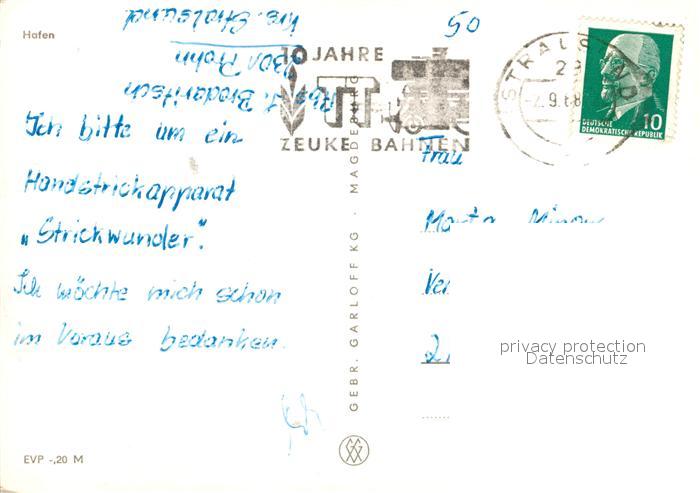 Hafen
Krs. Stralsund
Prohn
50
10 JAHRE
TT
ZEUKE BAHNEN
STRALSUND
DEUTSCHE
DEMOKRATISCHE REPUBLIK 10
Ich bitte um ein
Handstrickapparat
„Strickwunder".
Ich möchte mich schon
im Voraus bedanken.
Frau
GEBR. GARLOFF KG · MAGDEBURG
privacy protection
Datenschutz
EVP -,20 M